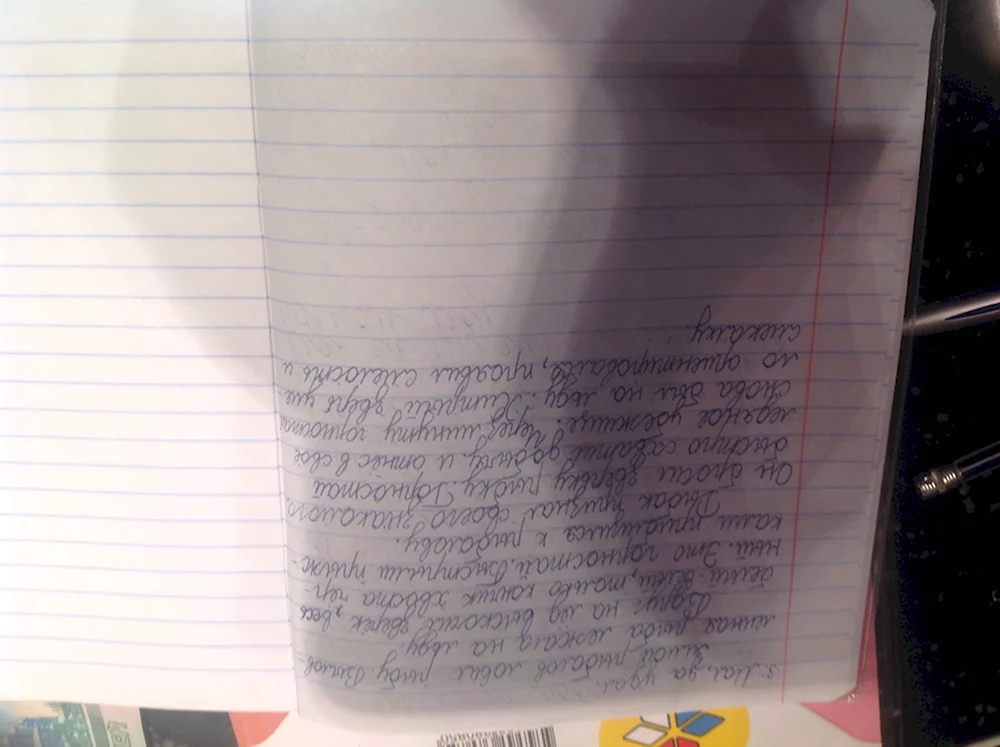 з. Мал, да удал.
Зимой рыболов ловил рыбу. Вылов-
ленная рыба лежала на льду.
Вдруг на лёд выскочил зверёк, весь
белый-белый, только кончик хвоста чёр-
ный. Это горностай. Быстрыми прыж-
ками придвинулся к рыболову.
Рыбак признал своего знакомого.
Он бросил зверьку рыбку. Горностай
быстро схватил добычу и отнёс в своё
ледяное убежище. Через минуту горностай
снова был на льду. Хитрый зверь уме-
ло ориентировался, проявил смелость и
смекалку.